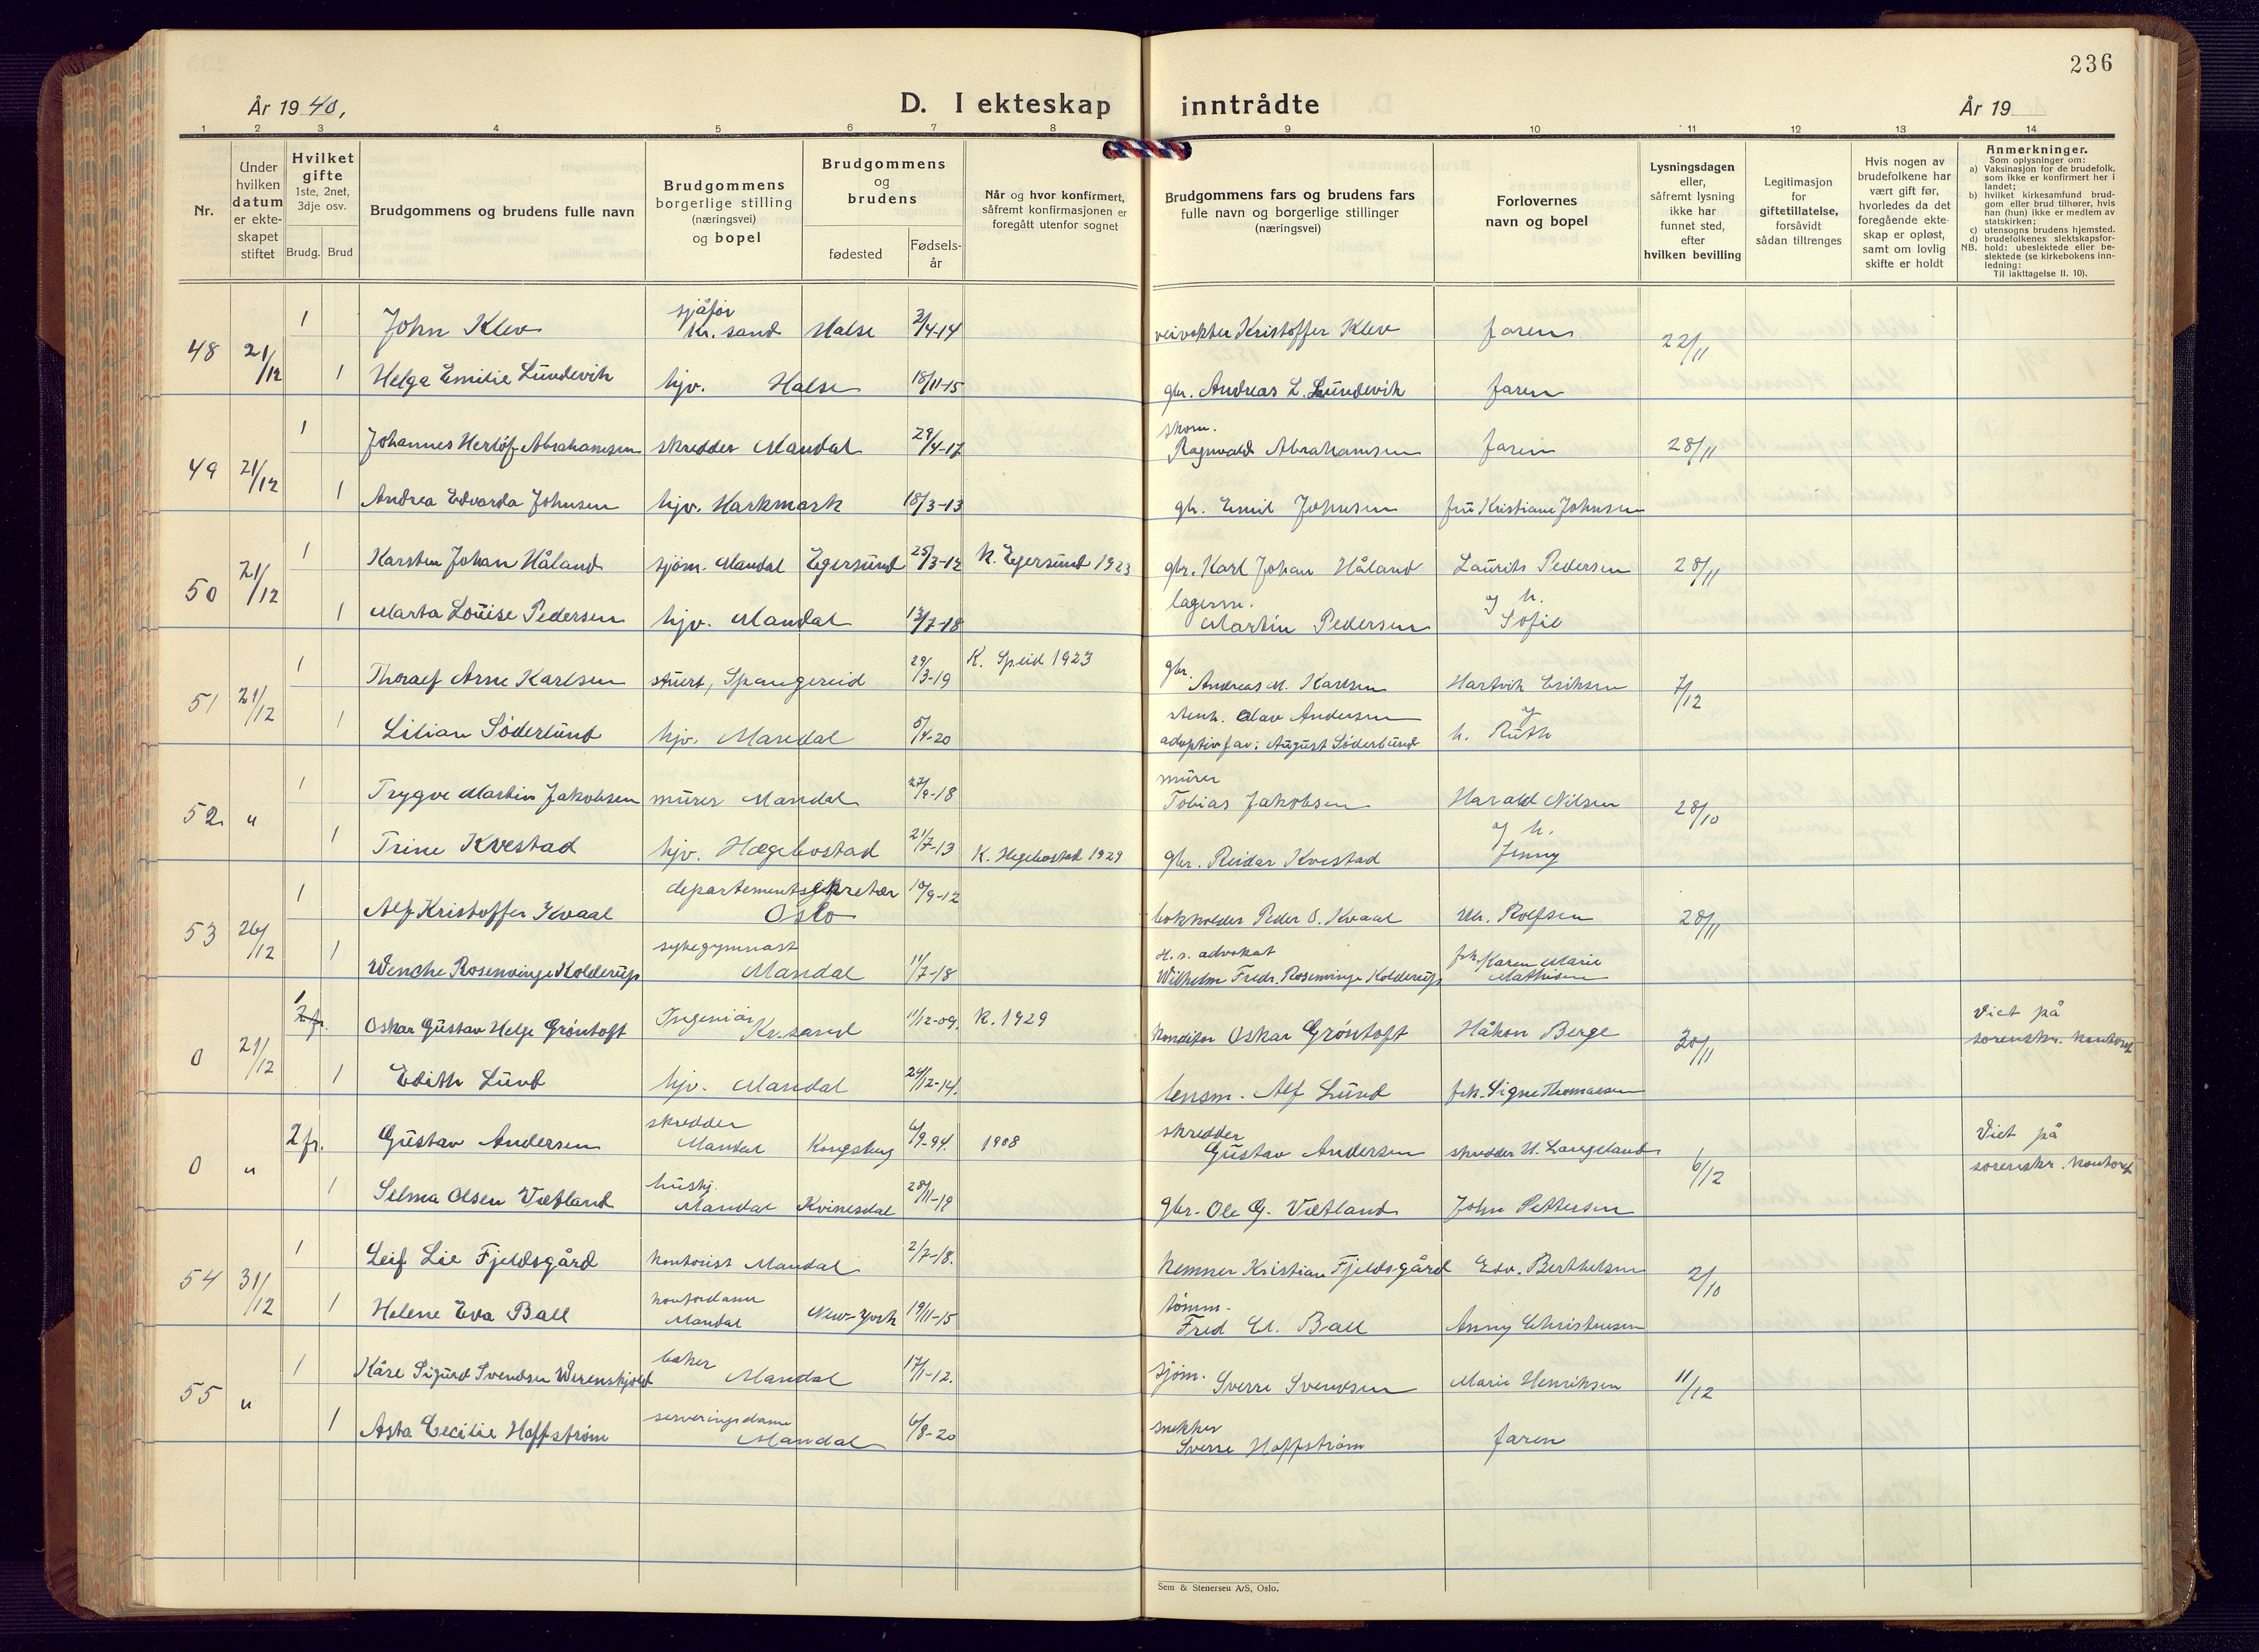 236
År 1940,
D. I ekteskap inntrådte
År 19
1 2 3 4 5 6 7 8 9 10 11 12 13 14
Nr.
Under
hvilken
datum
er ekte-
skapet
stiftet
Hvilket
gifte
1ste, 2net,
3dje osv.
Brudg. Brud
Brudgommens og brudens fulle navn
Brudgommens
borgerlige stilling
(næringsvei)
og bopel
Brudgommens
og
brudens
fødested
Fødsels-
år
Når og hvor konfirmert,
såfremt konfirmasjonen er
foregått utenfor sognet
Brudgommens fars og brudens fars
fulle navn og borgerlige stillinger
(næringsvei)
Forlovernes
navn og bopel
Lysningsdagen
eller,
såfremt lysning
ikke har
funnet sted,
efter
hvilken bevilling
Legitimasjon
for
giftetillatelse,
forsåvidt
sådan tiltrenges
Hvis nogen av
brudefolkene har
vært gift før,
hvorledes da det
foregående ekte-
skap er opløst,
samt om lovlig
skifte er holdt
Anmerkninger.
Som oplysninger om:
a) Vaksinasjon for de brudefolk,
som ikke er konfirmert her i
landet;
b) hvilket kirkesamfund brud-
gom eller brud tilhører, hvis
han (hun) ikke er medlem av
statskirken;
c) utensogns brudens hjemsted.
d) brudefolkenes slektskapsfor-
NB. hold: ubeslektede eller be-
slektede (se kirkebokens inn-
ledning:
Til iakttagelse II. 10).
48 21/12 1 John Klev sjåfør Kr. sand Halse 3/4-14 veivokter Kristoffer Klev faren 22/11
1 Helga Emilie Lundevik hjv. Halse 18/11-15 gbr. Andreas L. Lundevik faren
49 21/12 1 Johannes Herlof Abrahamsen skredder Mandal 29/4-17 skom. Ragnvald Abrahamsen faren 28/11
1 Andrea Edvarda Johnsen hjv. Harkmark 18/3-13 gb. Emil Johnsen fru Kristiane Johnsen
50 21/12 1 Karsten Johan Håland sjøm. Mandal Egersund 25/3-12 K. Egersund 1923 gbr. Karl Johan Håland Laurits Pedersen 28/11
1 Marta Louise Pedersen hjv. Mandal 13/7-18 lagerm. Martin Pedersen og h. Sofie
51 21/12 1 Tharalf Arne Karlsen stuert, Spangereid 29/3-19 K. Sp.eid 1923 gbr. Andreas M. Karlsen Hartvik Eriksen 7/12
1 Lilian Söderlund hjv. Mandal 5/4-20 stenh. Olav Andersen
adoptivfar: August Söderlund og h. Ruth
52 " 1 Trygve Martin Jakobsen murer Mandal 27/9-18 murer Tobias Jakobsen Harald Nilsen 28/10
1 Trine Kvestad hjv. Hægebostad 21/7-13 K. Hegebostad 1929 gbr. Reidar Kvestad og h. Jenny
53 26/12 1 Alf Kristoffer Kvaal departementsekretær Oslo 10/9-12 bokholder Peder O. Kvaal Rolfsen 28/11
1 Wenche Rosenvinge Kolderup sykegymnast Mandal 11/7-18 H.r. advokat Wilhelm Fredr. Rosenvinge Kolderup frk. Karen Marie Mathisen
0 21/12 1 2 fr. Oskar Gustav Helge Grøntoft Ingeniør Kr.sand 11/12-09. K. 1929 konditor Oskar Grøntoft Håkon Berge 30/11 Viet på sorenskr. kontoret
1 Edith Lund hjv. Mandal 24/12-14. lensm. Alf Lund frk. Signe Thomassen
0 " 2 fr. Gustav Andersen skredder Mandal Kongsberg 6/9-94. 1908 skredder Gustav Andersen skredder H. Langeland 6/12 Viet på sorenskr. kontoret
1 Selma Olsen Vætland hushj. Mandal Kvinesdal 28/11-19 gbr. Ole G. Vætland John Pettersen
54 31/12 1 Leif Lie Fjeldsgård kontorist Mandal 2/7-18. Kemner Kristian Fjeldsgård Edv. Berthelsen 2/10
1 Helene Eva Ball kontordame Mandal New-York 19/11-15 tømm. Fred Ball Anny Christensen
55 " 1 Kåre Sigurd Svendsen Werenskjold baker Mandal 17/1-12. sjøm. Sverre Svendsen Marie Henriksen 11/12
1 Asta Cecilie Hoffstrøm serveringsdame Mandal 6/8-20 snekker Sverre Hoffstrøm faren
Sem & Stenersen A/S, Oslo.